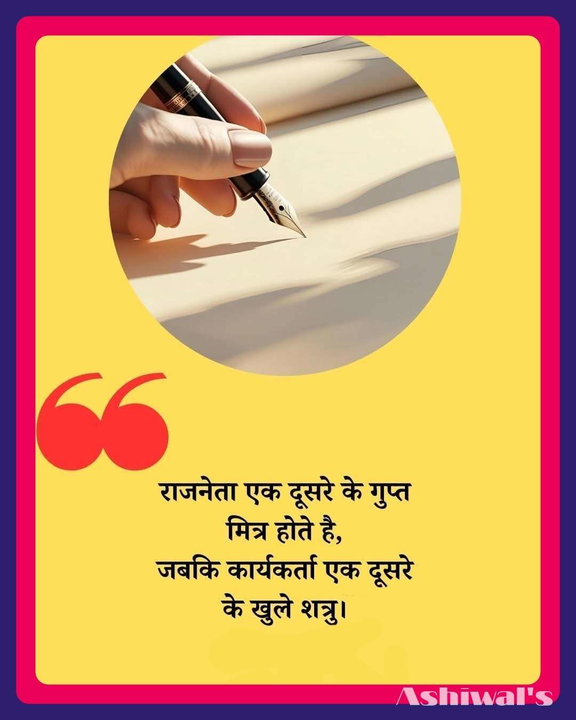 राजनेता एक दूसरे के गुप्त
मित्र होते है,
जबकि कार्यकर्ता एक दूसरे
के खुले शत्रु।
Ashiwal's